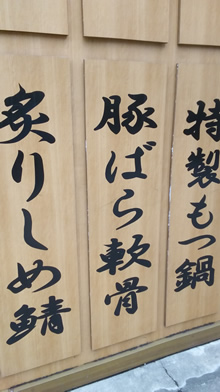 特製もつ鍋
豚ばら軟骨
炙りしめ鯖